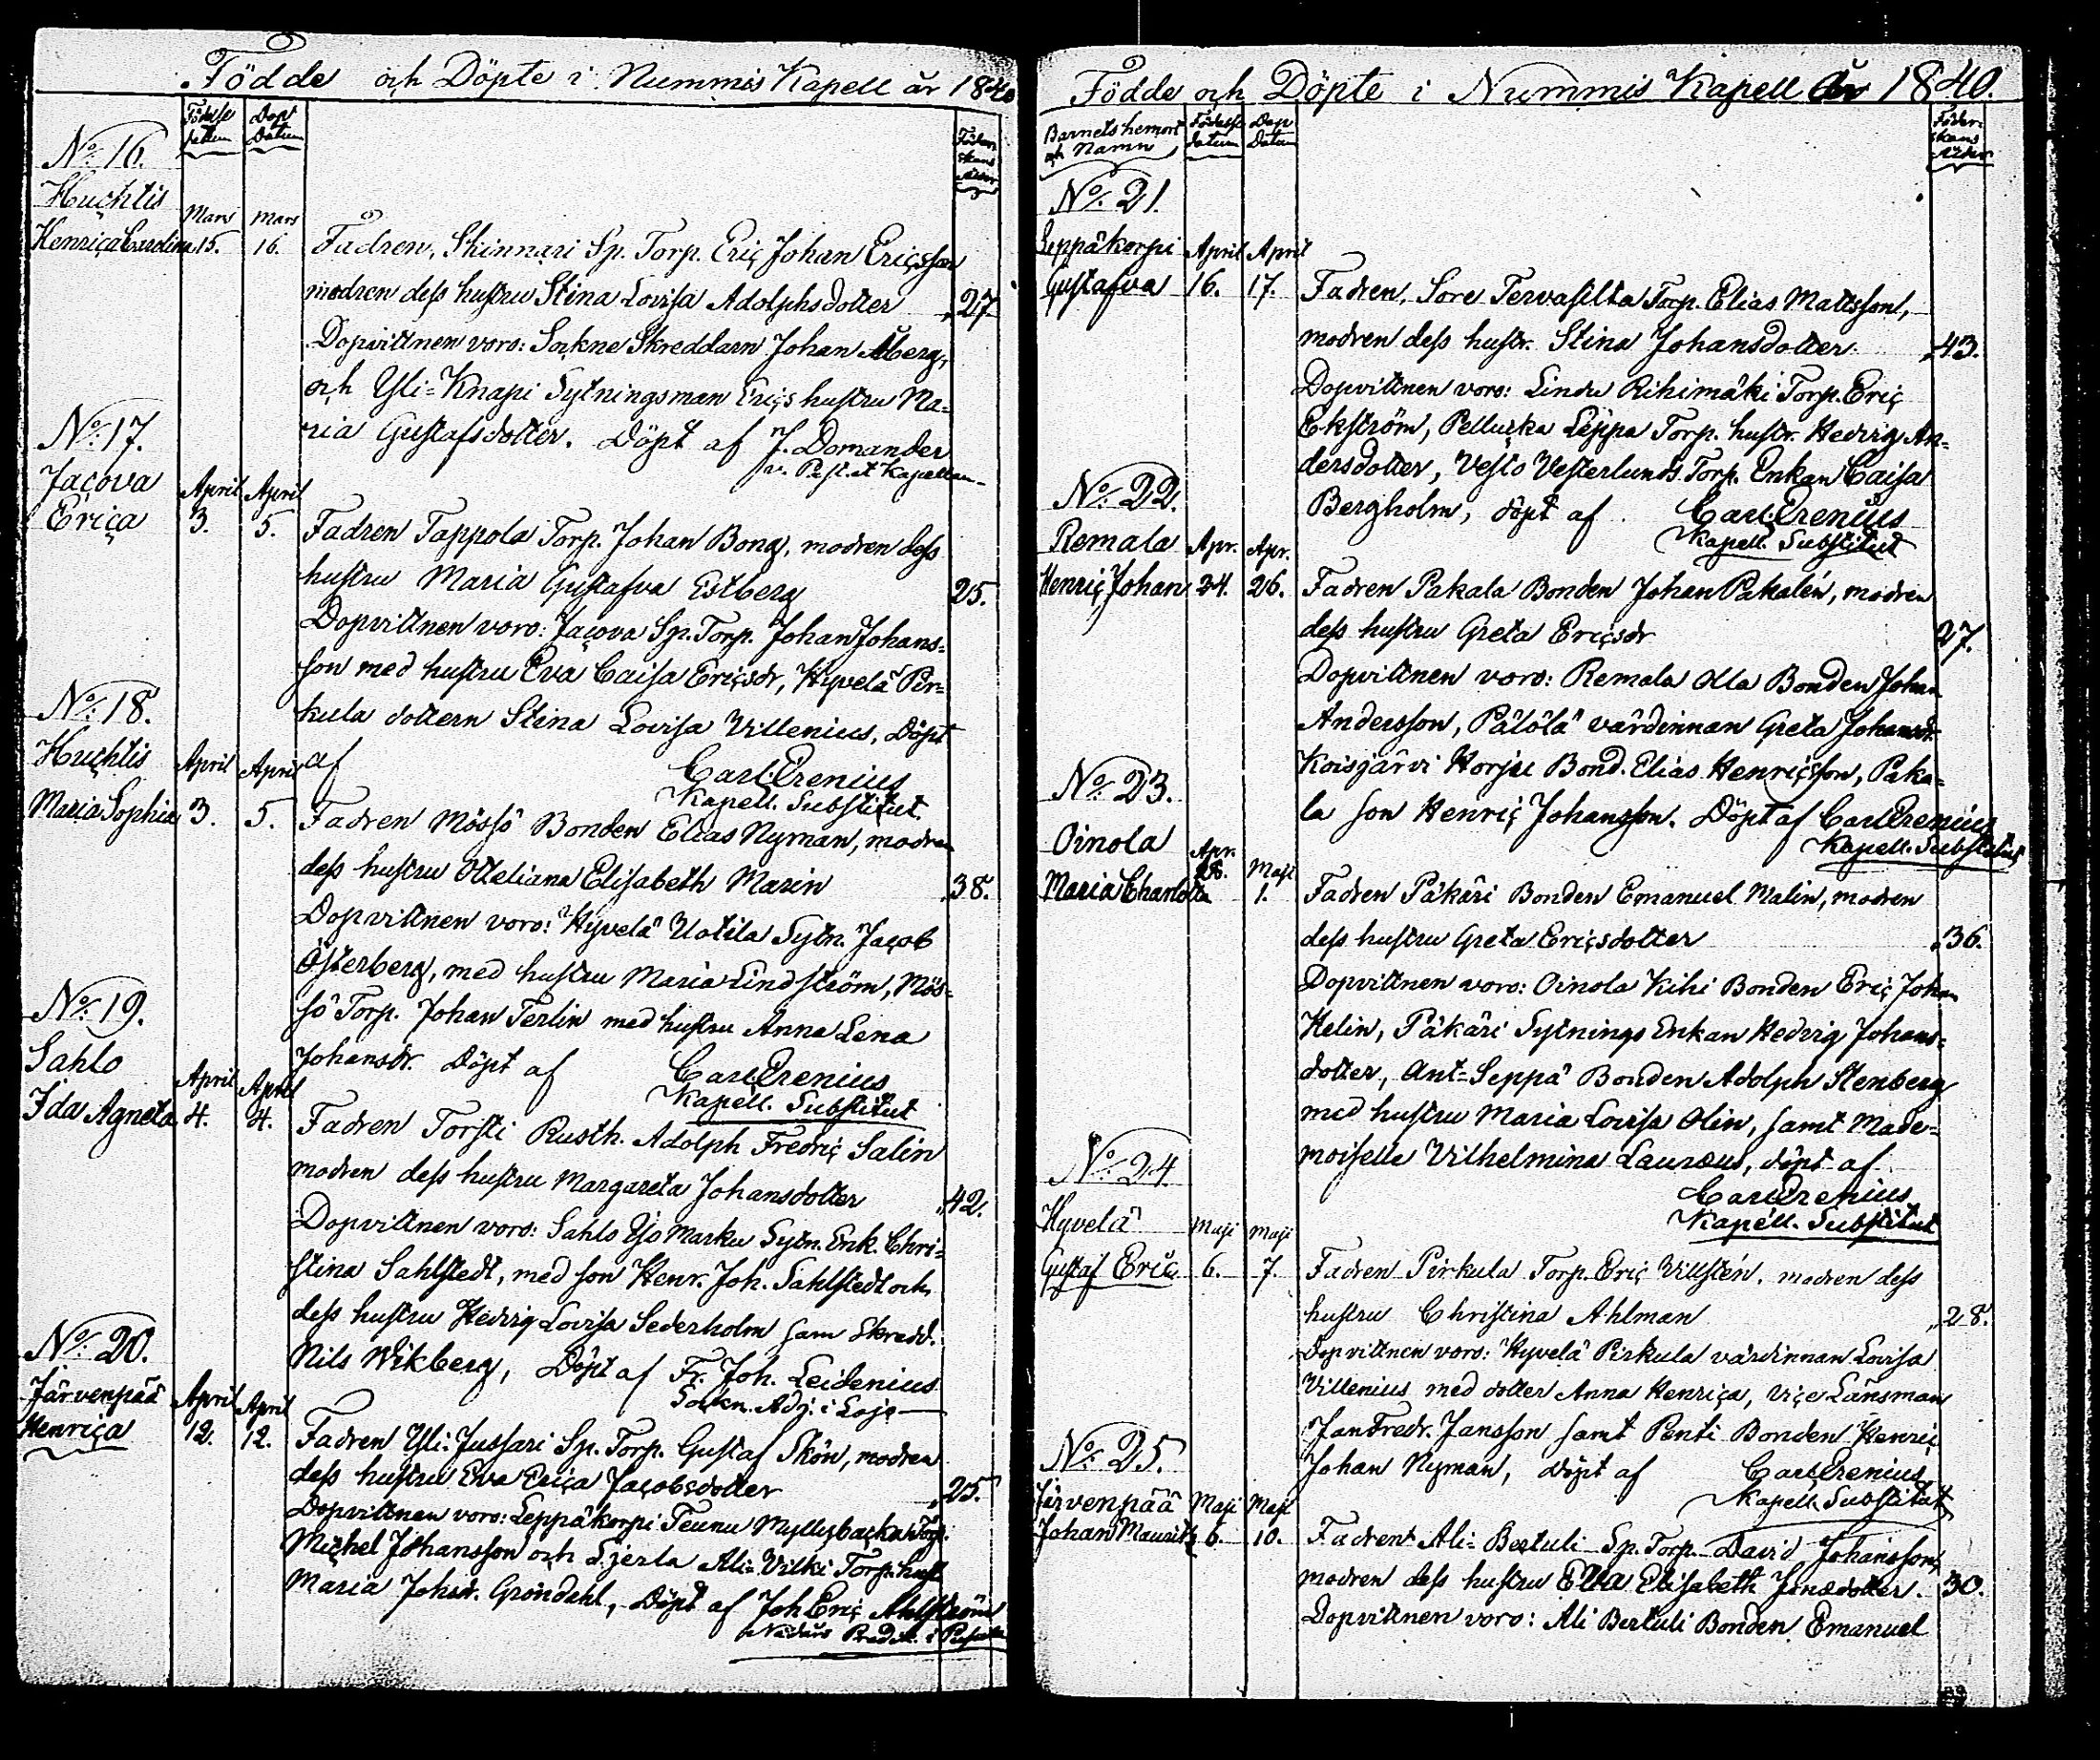 Födde och Döpte i Nummis Kapell år 1840
Födelse datum
Dop Datum
Föderskans ålder
No. 16.
Huchtis
Mars Mars
Henrica Carolina 15. 16. Fadren, Skinnari Sp. Torp. Eric Johan Ericsson
modren dess hustru Stina Lovisa Adolphsdotter 27
Dopvittnen voro: Sockne Skreddarn Johan Åberg,
och Yli-Knapi Sytningsman Erics hustru Ma-
ria Gustafsdotter. Döpt af J. Domander
v. Past. et Kapellan
No. 17.
Jacova
April April
Erica 3. 5. Fadren Tappola Torp. Johan Bong, modren dess
hustru Maria Gustafva Estberg 25.
Dopvittnen voro: Jacova Sp. Torp. Johan Johans-
son med hustru Eva Caisa Ericsdr, Hyvelä Pir-
kula dottern Stina Lovisa Villenius, Döpt
af Carl Crenius
Kapell. Substitut.
No. 18.
Huchtis
April April
Maria Sophia 3. 5. Fadren Mössö Bonden Elias Nyman, modren
dess hustru Otteliana Elisabeth Marin 38.
Dopvittnen voro: Hyvelä Uotila Sytn. Jacob
Österberg, med hustru Maria Lindström, Mös-
sö Torp. Johan Terlin med hustru Anna Lena
Johansdr. Döpt af Carl Crenius
Kapell. Substitut
No. 19.
Sahlo
April April
Ida Agneta 4. 4. Fadren Torsti Rusth. Adolph Fredric Salin
modren dess hustru Margareta Johansdotter 42.
Dopvittnen voro: Sahlo Yjö Marku Sytn. Enk. Chri-
stina Sahlstedt, med son Henr. Joh. Sahlstedt och
dess hustru Hedvig Lovisa Sederholm sam Skredd.
Nils Wikberg, Döpt af Fr. Joh. Leidenius
Sockn. Adj. i Lojo
No. 20.
Järvenpää
April April
Henrica 12. 12. Fadren Yli-Jussari Sp. Torp. Gustaf Skön, modren
dess hustru Eva Erica Jacobsdotter 25.
Dopvittnen voro: Leppäkorpi Teunu Myllysbacka Torp.
Michel Johansson och Sjerla Ali-Vilki Torp. hust
Maria Johsdr. Gröndahl, Döpt af Joh Eric Ahlström
Nådårs Predik. i Pusula
Födde och Döpte i Nummis Kapell år 1840.
Barnets hemort och Namn
Födelse datum
Dop Datum
Föderskans ålder
No. 21.
Leppäkorpi April April
Gustafva 16. 17. Fadren, Sore Tervasilta Torp. Elias Mattsson,
modren dess hustr. Stina Johansdotter 43.
Dopvittnen voro: Lindu Rihimäki Torp. Eric
Ekström, Pellucka Leppa Torp. hustr. Hedvig An-
dersdotter, Vesto Vesterlunds Torp. Enkan Caisa
Bergholm, döpt af Carl Crenius
Kapell. Substitut
No. 22.
Remala Apr. Apr.
Henric Johan 24. 26. Fadren Pakala Bonden Johan Pakalén, modren
dess hustru Greta Ericsdr 27.
Dopvittnen voro: Remala Olla Bonden Johan
Andersson, Pälölä värdinnan Greta Johansdr.
Koisjärvi Horju Bond. Elias Henricsson, Paka-
la son Henric Johansson. Döpt af Carl Crenius
Kapell. Substitut
No. 23.
Oinola
Apr. Maji
Maria Charlotta 28. 1. Fadren Päkäri Bonden Emanuel Malin, modren
dess hustru Greta Ericsdotter 36.
Dopvittnen voro: Oinola Kihi Bonden Eric Johan
Helin, Päkäri Sytnings Enkan Hedvig Johans-
dotter, Ant-Seppä Bonden Adolph Stenberg
med hustru Maria Lovisa Olin, samt Made-
moiselle Vilhelmina Lauræus, döpt af
Carl Crenius
Kapell. Substitut
No. 24
Hyvelä Maji Maji
Gustaf Eric 6. 7. Fadren Pirkula Torp. Eric Villstén, modren dess
hustru Christina Ahlman 28.
Dopvittnen voro: Hyvelä Pirkula värdinnan Lovisa
Villenius med dotter Anna Henrica, Vice Länsman
Jan Fredr. Jansson samt Penti Bonden Henric
Johan Nyman, döpt af Carl Crenius
Kapell. Substitut
No. 25.
Järvenpää Maji Maji
Johan Mauritz 6. 10. Fadren Ali-Bertuli Sp. Torp. David Johansson,
modren dess hustru Ella Elisabeth Jonsdotter. 30.
Dopvittnen voro: Ali Bertuli Bonden Emanuel